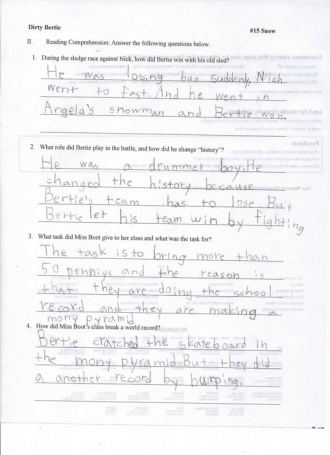 Dirty Bertie
#15 Snow
II. Reading Comprehension: Answer the following questions below
1. During the sledge race against Nick, how did Bertie win with his old sled?
He was losing but suddenly, Nick
went to fast. And he went in
Angela's snowman and Bertie won.
2. What role did Bertie play in the battle, and how did he change "history"?
He was a drummer boy. He
changed the history because
Bertie's team has to lose But
Bertie let his team win by fighting
3. What task did Miss Boot give to her class and what was the task for?
The task is to bring more than
50 penniys and the reason is
that they are doing the school
record and they are making a
mony pyramid
4. How did Miss Boot's class break a world record?
Bertie cratched the skateboard in
the mony pyramid. But they did
a another record by burping.